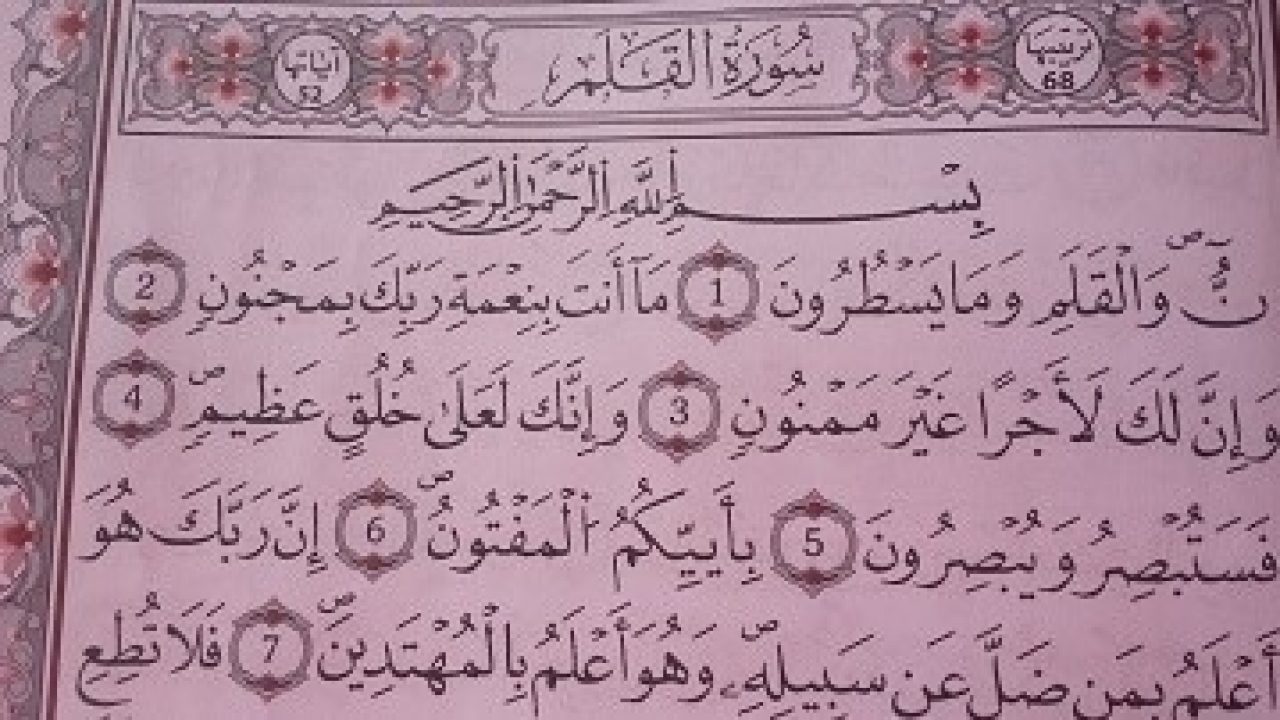 ترتيبها 68 سُورَةُ الْقَلَمِ آياتها 52
بِسْمِ اللَّهِ الرَّحْمَٰنِ الرَّحِيمِ
نُّ وَالْقَلَمِ وَمَا يَسْطُرُونَ 1 مَآ أَنتَ بِنِعْمَةِ رَبِّكَ بِمَجْنُونٍ 2
وَإِنَّ لَكَ لَأَجْرًا غَيْرَ مَمْنُونٍ 3 وَإِنَّكَ لَعَلَىٰ خُلُقٍ عَظِيمٍ 4
فَسَتُبْصِرُ وَيُبْصِرُونَ 5 بِأَييِّكُمُ الْمَفْتُونُ 6 إِنَّ رَبَّكَ هُوَ
أَعْلَمُ بِمَن ضَلَّ عَن سَبِيلِهِ وَهُوَ أَعْلَمُ بِالْمُهْتَدِينَ 7 فَلَا تُطِعِ